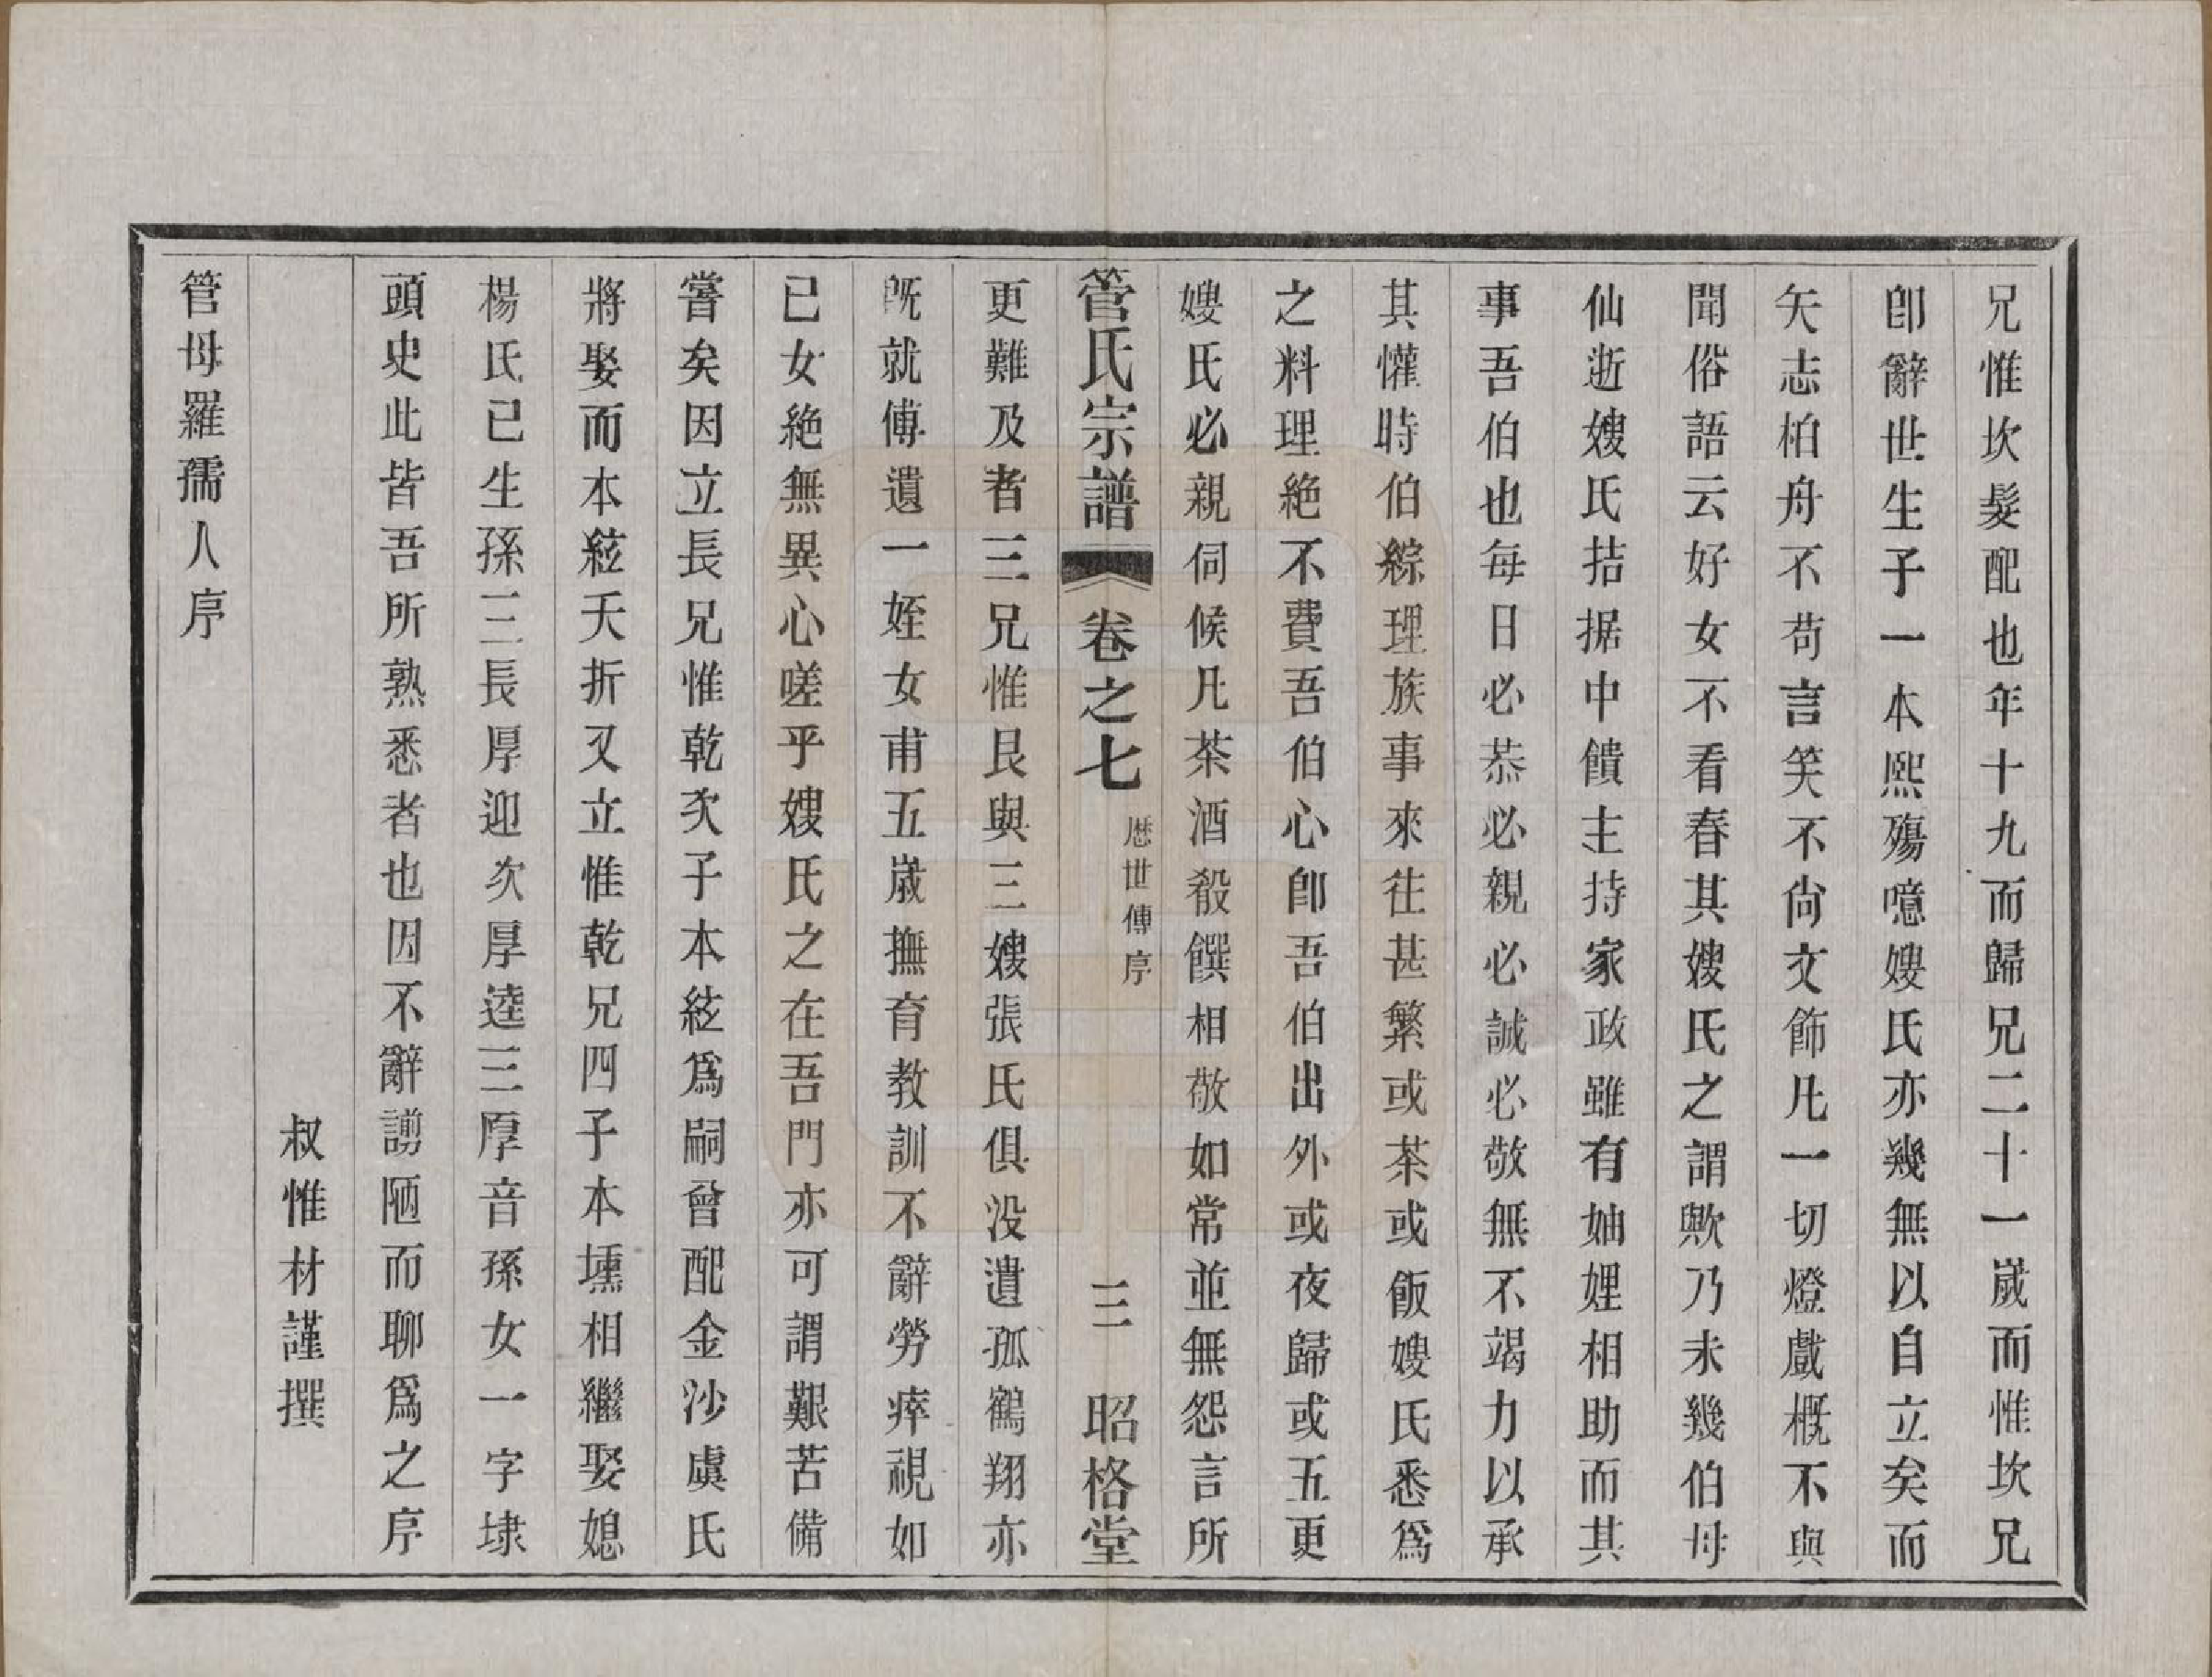 兄惟坎髮配也年十九而歸兄二十一嵗而惟坎兄
卽辭世生子一本熙殤噫嫂氏亦幾無以自立矣而
矢志柏舟不苟言笑不尙文飾凡一切燈戲槪不與
聞俗語云好女不看春其嫂氏之謂歟乃未幾伯母
仙逝嫂氏拮据中饋主持家政雖有妯娌相助而其
事吾伯也每日必恭必親必誠必敬無不竭力以承
其懽時伯綜理族事來徃甚繁或茶或飯嫂氏悉爲
之料理絶不費吾伯心卽吾伯出外或夜歸或五更
嫂氏必親伺候凡茶酒殽饌相敬如常並無怨言所
管氏宗譜 卷之七 歴世傳序 三 昭格堂
更難及者三兄惟艮與三嫂張氏俱没遺孤鶴翔亦
旣就傳遺一姪女甫五嵗撫育教訓不辭勞瘁視如
已女絶無異心嗟乎嫂氏之在吾門亦可謂艱苦備
嘗矣因立長兄惟乾次子本絃爲嗣曾配金沙虞氏
將娶而本絃夭折又立惟乾兄四子本壎相繼娶媳
楊氏已生孫三長厚迎次厚逵三厚音孫女一字埭
頭史此皆吾所熟悉者也因不辭謭陋而聊爲之序
叔惟材謹撰
管母羅孺人序